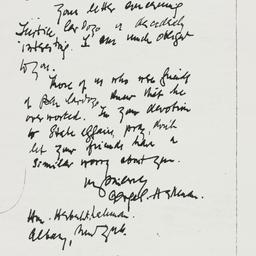 Your letter concerning
Justice Cardozo is decidedly
interesting. I am much obliged
to you.
Those of us who were friends
of Cardozo knew that he
overworked. In your devotion
to State affairs, pray, don't
let your friends have a
similar worry about you.
Sincerely
Hon. Herbert H. Lehman.
Albany, New York.